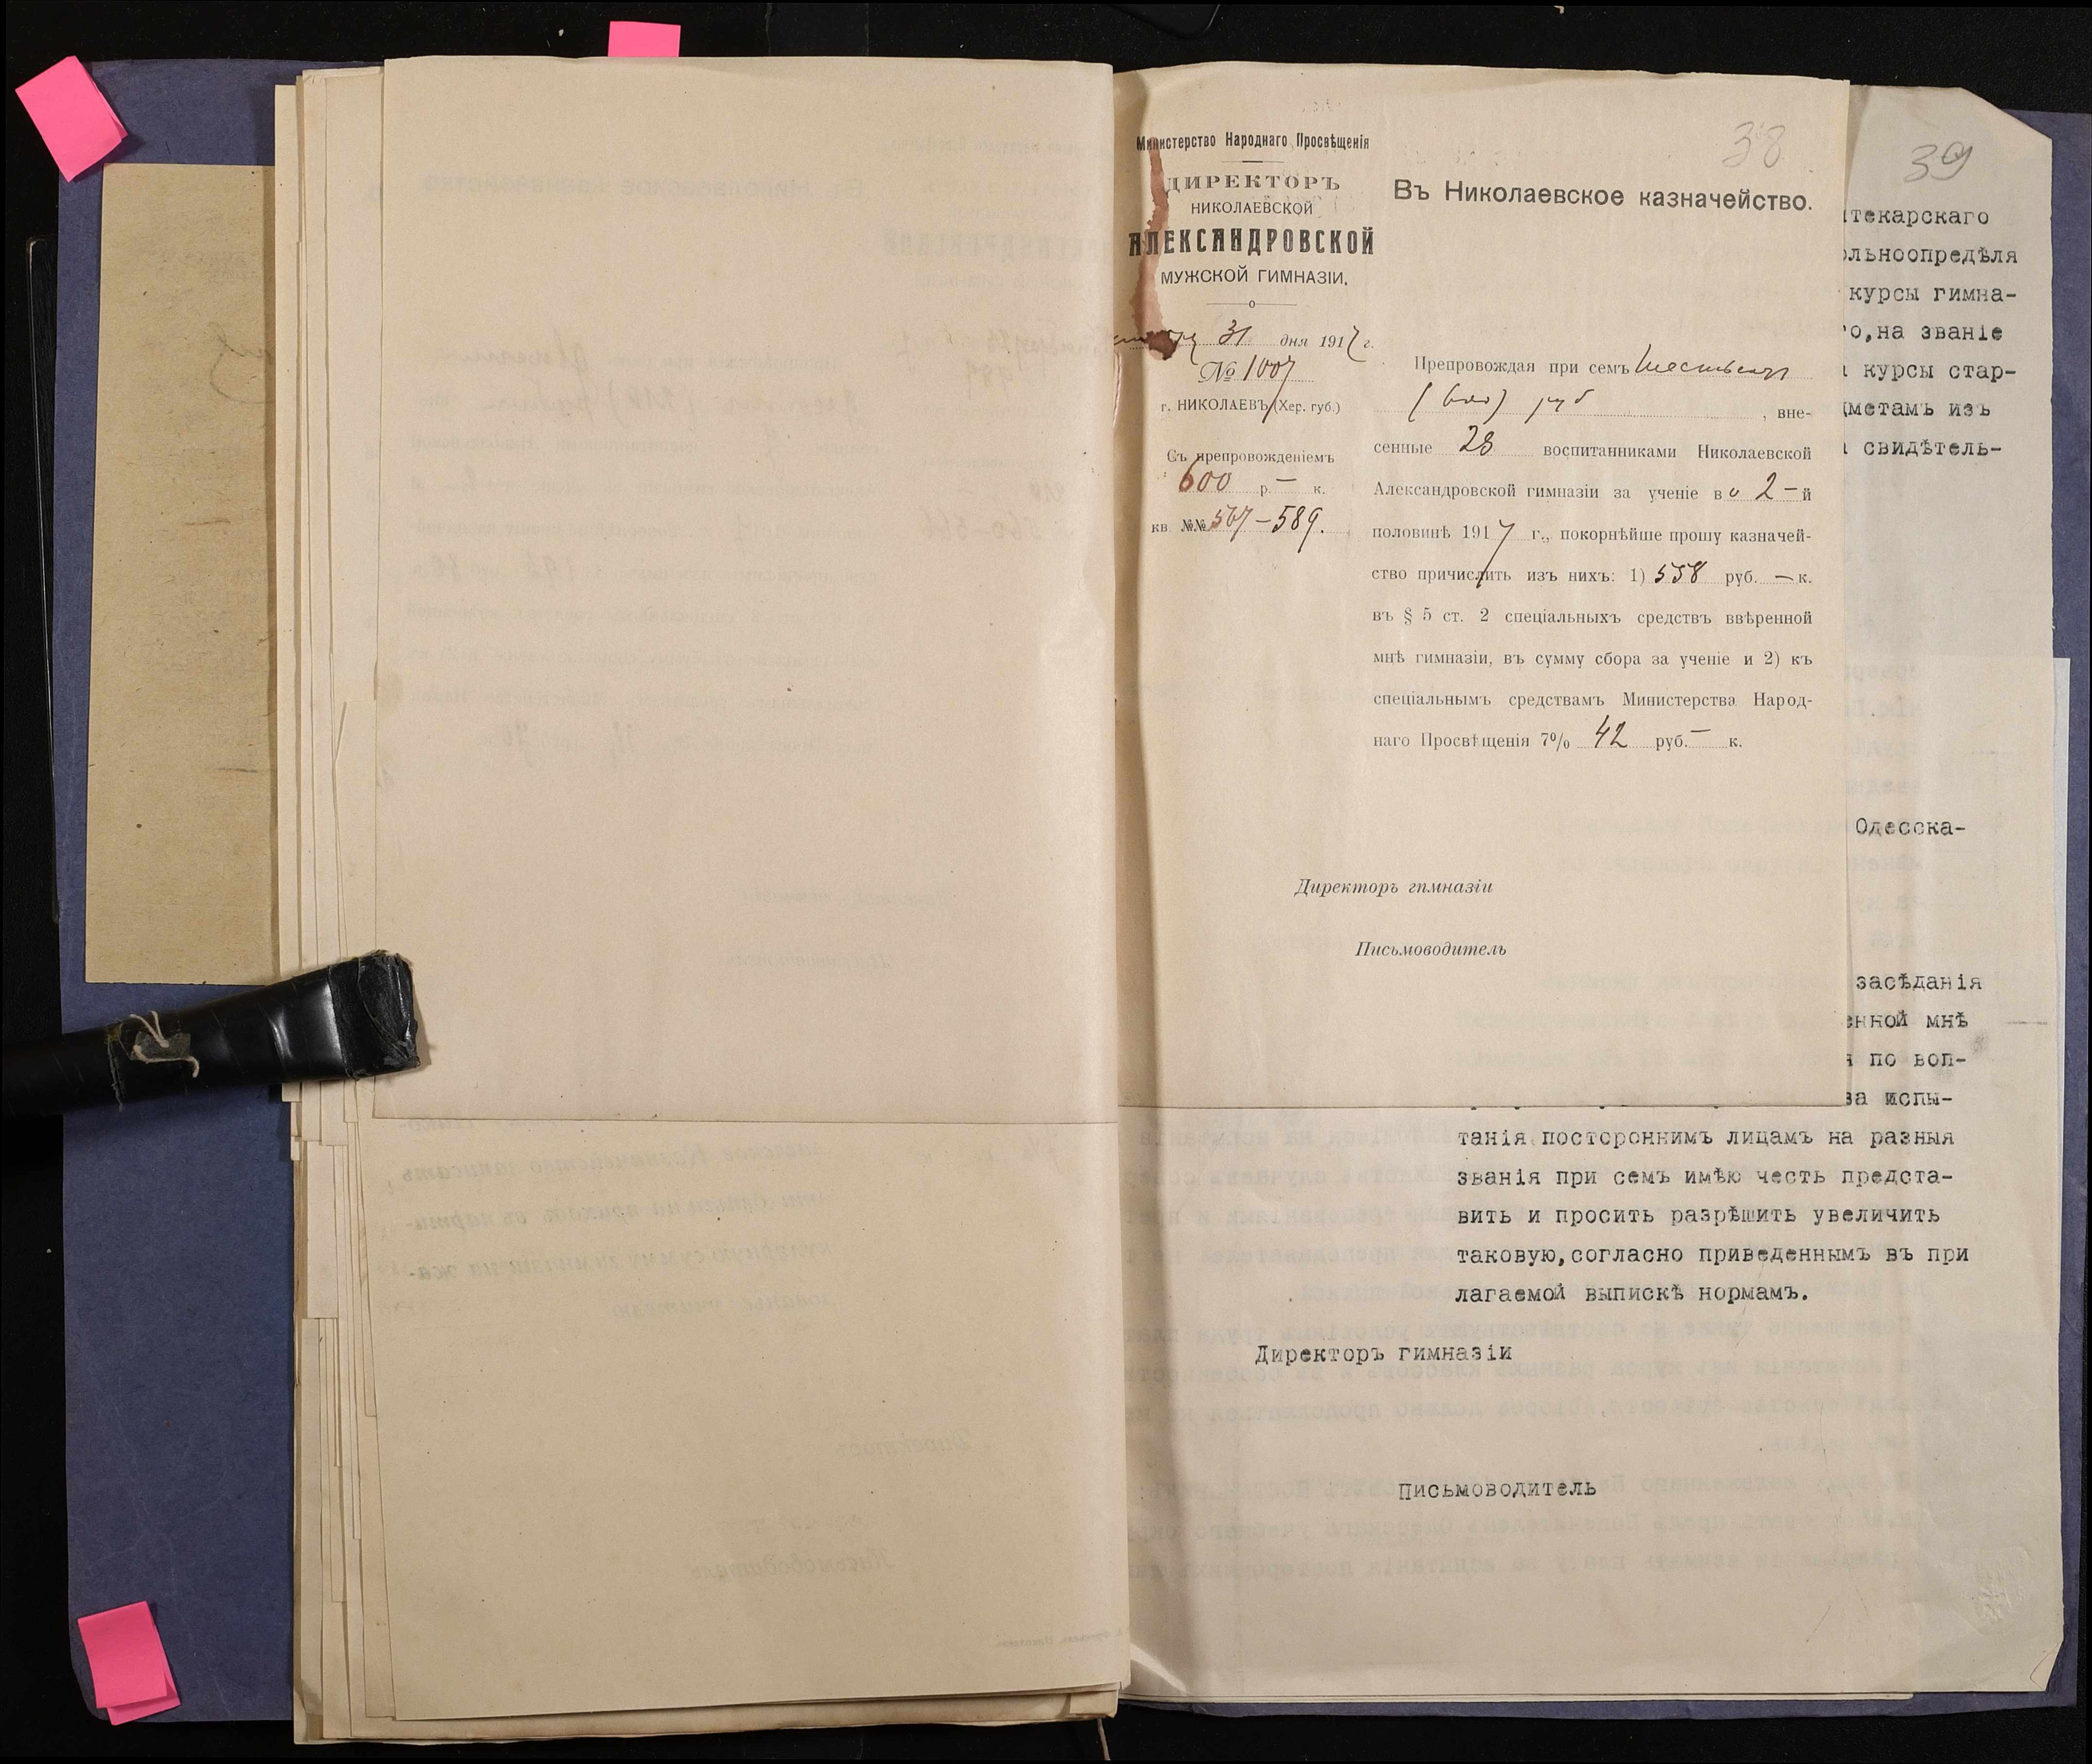 38
39
Министерство Народнаго Просвѣщенія
ДИРЕКТОРЪ
НИКОЛАЕВСКОЙ
АЛЕКСАНДРОВСКОЙ
МУЖСКОЙ ГИМНАЗІИ.
31 дня 1917 г.
№ 1007
г. НИКОЛАЕВЪ (Хер. губ.)
Съ препровожденіемъ
600 р. — к.
кв. №№ 567-589.
Въ Николаевское казначейство.
Препровождая при семъ шестьсот
(600) руб , вне-
сенные 28 воспитанниками Николаевской
Александровской гимназіи за ученіе во 2-й
половинѣ 1917 г., покорнѣйше прошу казначей-
ство причислить изъ нихъ: 1) 558 руб. — к.
въ § 5 ст. 2 спеціальныхъ средствъ ввѣренной
мнѣ гимназіи, въ сумму сбора за ученіе и 2) къ
спеціальнымъ средствамъ Министерства Народ-
наго Просвѣщенія 7% 42 руб. — к.
Директоръ гимназіи
Письмоводитель
текарскаго
ольноопредѣля
курсы гимна-
о,на званіе
курсы стар-
метамъ изъ
свидѣтель-
Одесска-
засѣданія
енной мнѣ
по воп-
за испы-
танія постороннимъ лицамъ на разныя
званія при семъ имѣю честь предста-
вить и просить разрѣшить увеличить
таковую,согласно приведеннымъ въ при
лагаемой выпискѣ нормамъ.
Директоръ гимназіи
Письмоводитель